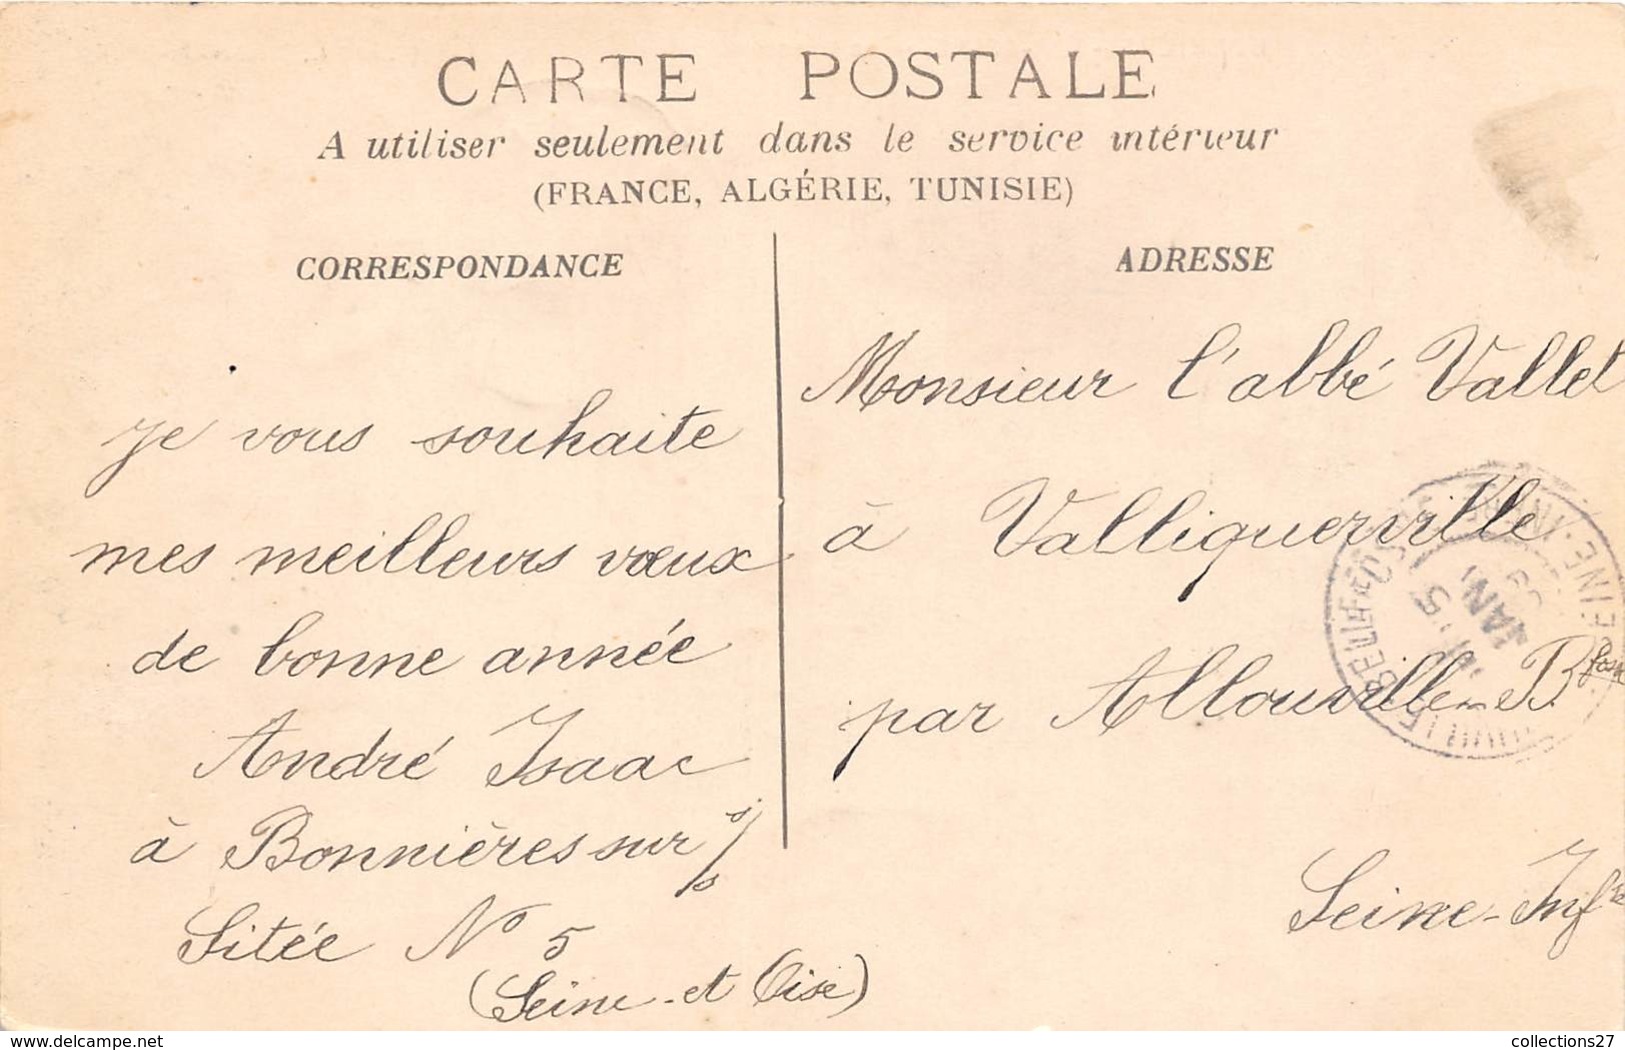 CARTE POSTALE
A utiliser seulement dans le service intérieur
(FRANCE, ALGÉRIE, TUNISIE)
CORRESPONDANCE
je vous souhaite
mes meilleurs vœux
de bonne année
André Isaac
à Bonnières sur s/s
Sitée No 5
(Seine-et Oise)
ADRESSE
Monsieur l'abbé Vallet
à Valliquerville
par Allouville-B
Seine-Infre
5
JAN
SEINE-INFRE
delcampe.net
collections27